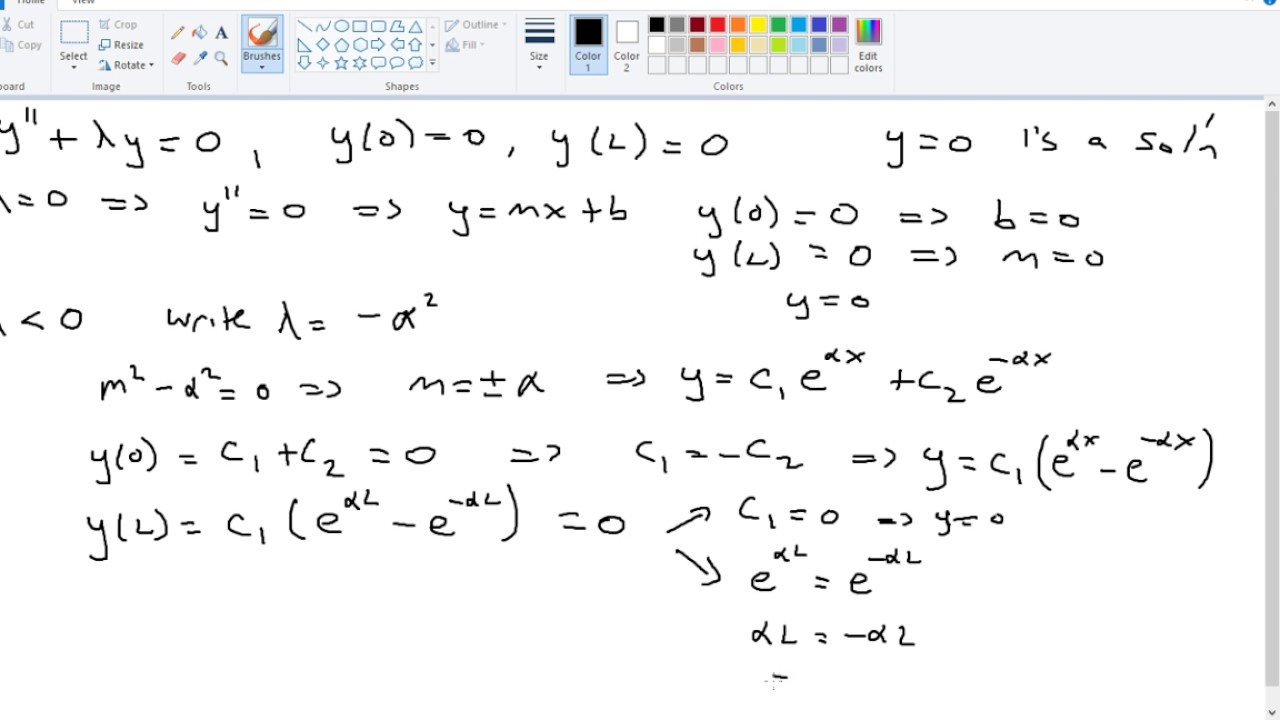 Home View
Cut
Copy
Select
Crop
Resize
Rotate
Brushes
Outline
Fill
Size
Color 1
Color 2
Edit colors
Image Tools Shapes Colors
y'' + λy = 0, y(0) = 0, y(L) = 0 y = 0 is a sol'n
λ = 0 => y'' = 0 => y = mx + b y(0) = 0 => b = 0
y(L) = 0 => m = 0
y = 0
λ < 0 write λ = -α²
m² - α² = 0 => m = ± α => y = c₁ e^{αx} + c₂ e^{-αx}
y(0) = c₁ + c₂ = 0 => c₁ = -c₂ => y = c₁ (e^{αx} - e^{-αx})
y(L) = c₁ (e^{αL} - e^{-αL}) = 0 ↗ c₁ = 0 => y = 0
↘ e^{αL} = e^{-αL}
αL = -αL